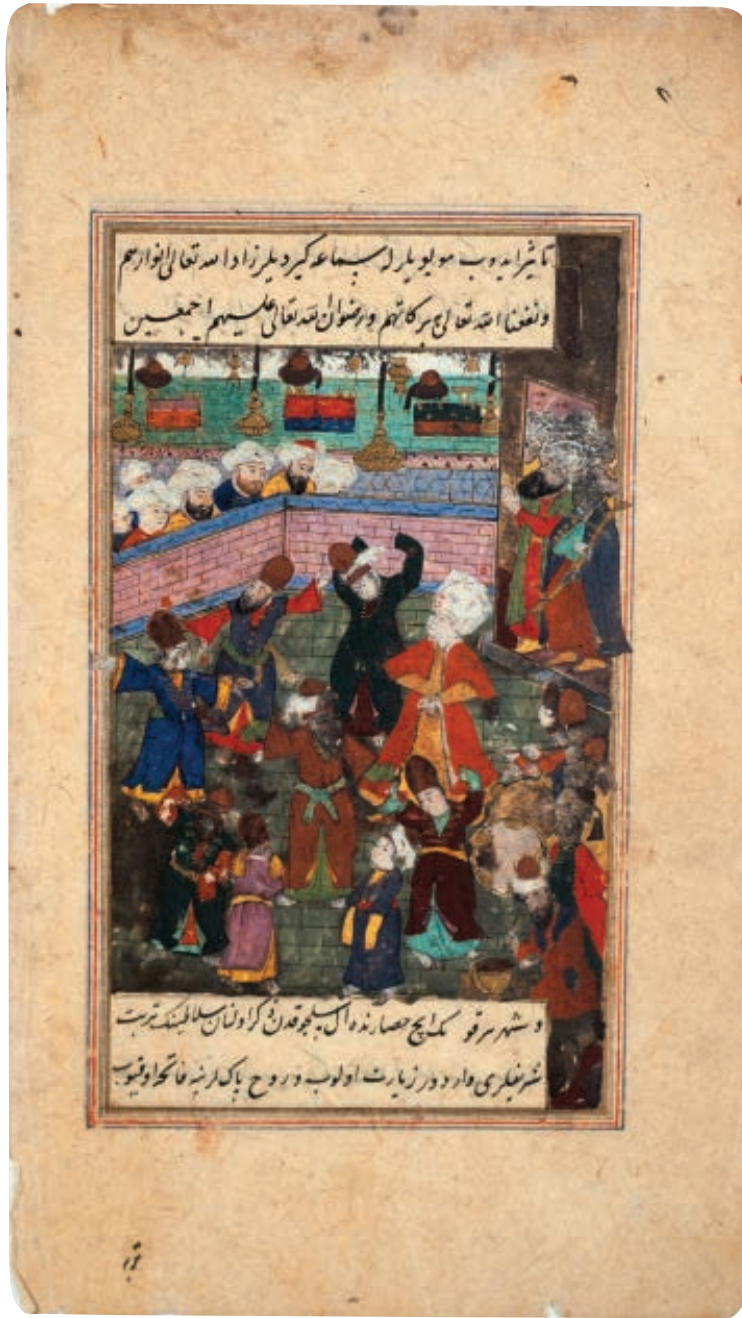 تاثیر ایدوب مولویلر له سماعه کیردیلر زاد الله تعالی انوارهم
ونفعنا الله تعالی ببرکاتهم ورضوان الله تعالی علیهم اجمعین
و شهر مرقو مک ایچ حصارنده آل سلجوقدن ذکر اولنان سلاطینک تربت
شریفلری وارد در زیارت اولوب و روح پاک لرینه فاتحه اوقیوب